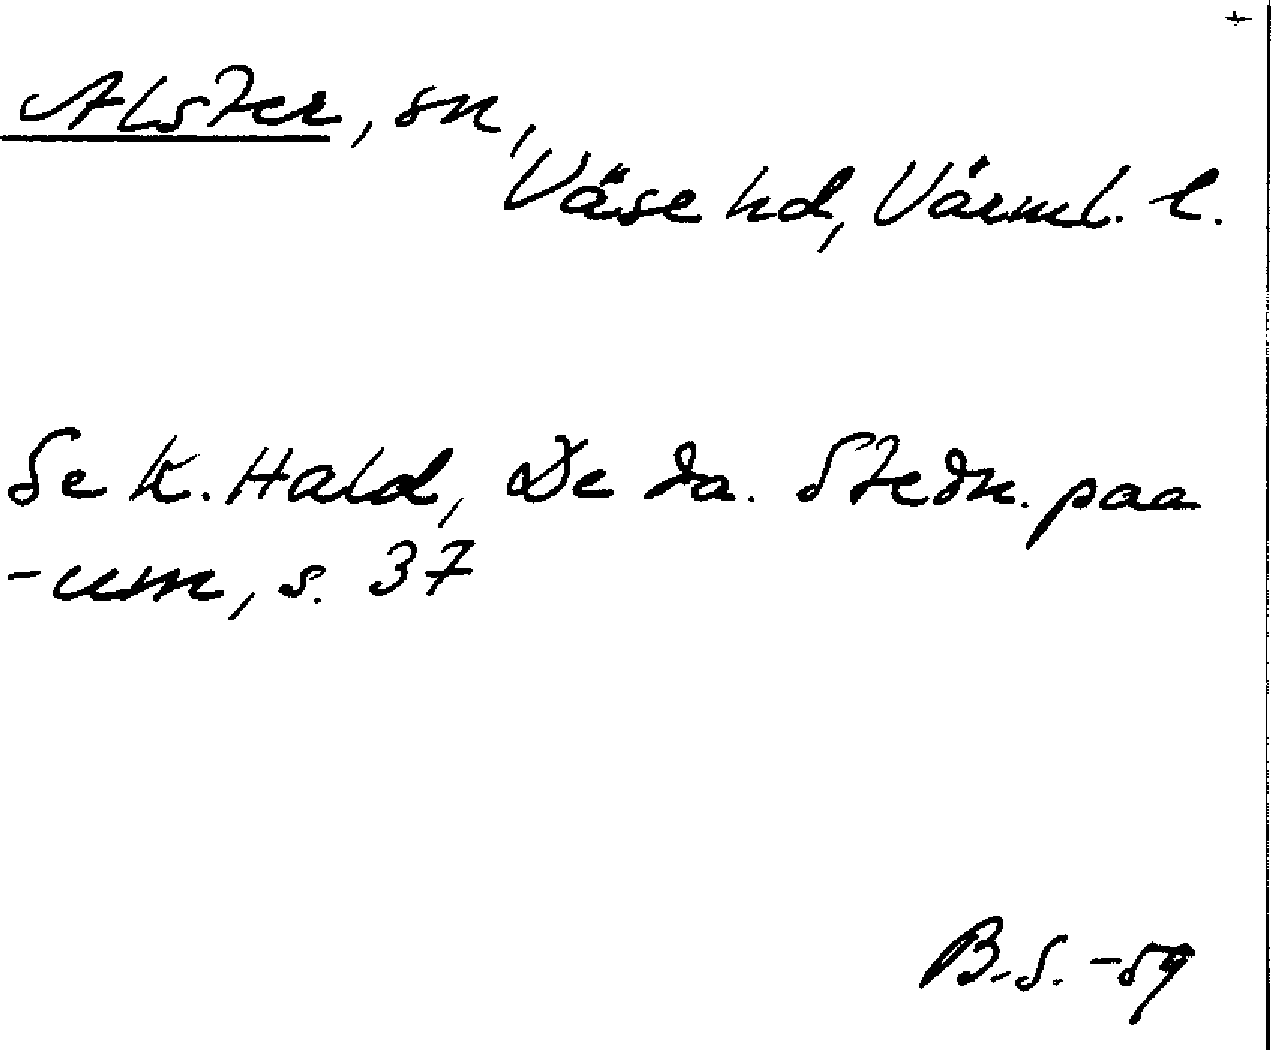 Alster, sn,
Väse hd, Värml. l.
Se K. Hald, De da. Stedn. paa
-um, s. 37
B.S. -59